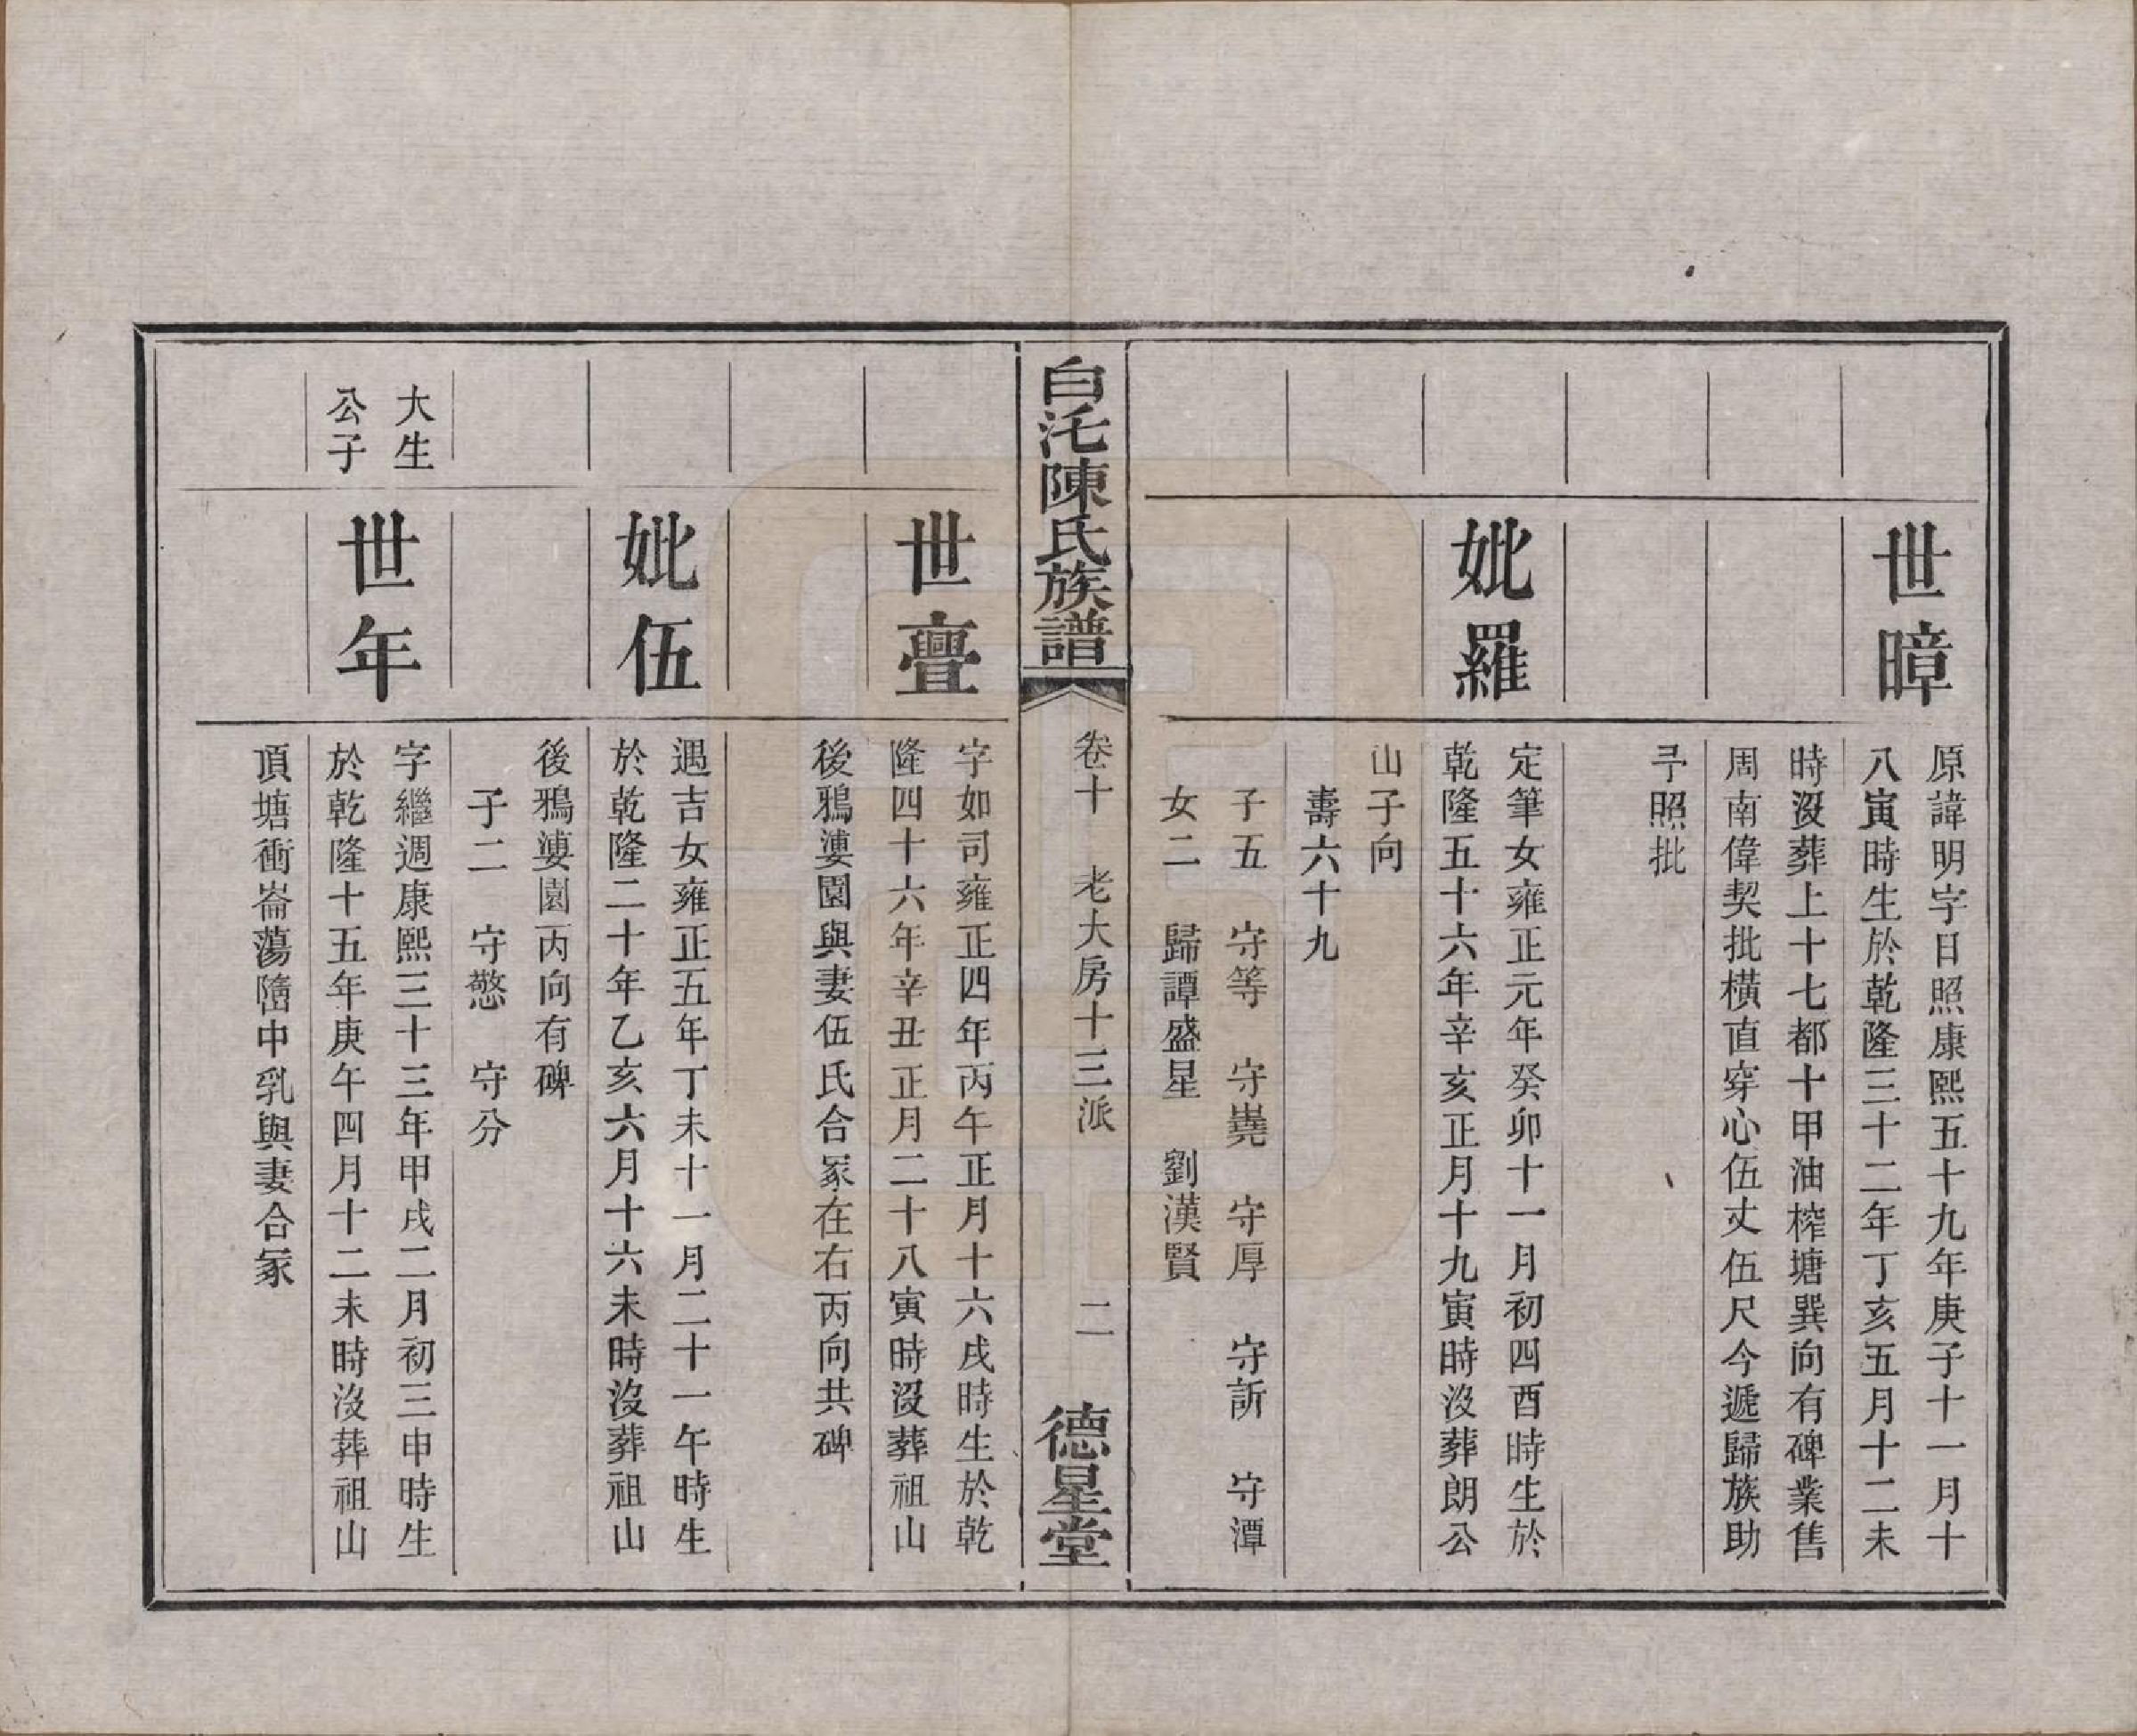 世暲
原諱明字日照康熙五十九年庚子十一月十
八寅時生於乾隆三十二年丁亥五月十二未
時沒葬上十七都十甲油榨塘巽向有碑業售
周南偉契批橫直穿心伍丈伍尺今遞歸族助
予照批
妣羅
定筆女雍正元年癸卯十一月初四酉時生於
乾隆五十六年辛亥正月十九寅時沒葬朗公
山子向
壽六十九
子五　守等　守嶤　守厚　守訢　守潭
女二　歸譚盛星　劉漢賢
白沱陳氏族譜
卷十　老大房十三派
二
德星堂
世亹
字如司雍正四年丙午正月十六戌時生於乾
隆四十六年辛丑正月二十八寅時沒葬祖山
後鴉漊園與妻伍氏合冢在右丙向共碑
妣伍
遇吉女雍正五年丁未十一月二十一午時生
於乾隆二十年乙亥六月十六未時沒葬祖山
後鴉漊園丙向有碑
子二　守憨　守分
大生
公子
世年
字繼週康熙三十三年甲戌二月初三申時生
於乾隆十五年庚午四月十二未時沒葬祖山
頂塘衝崙蕩隋中乳與妻合冢